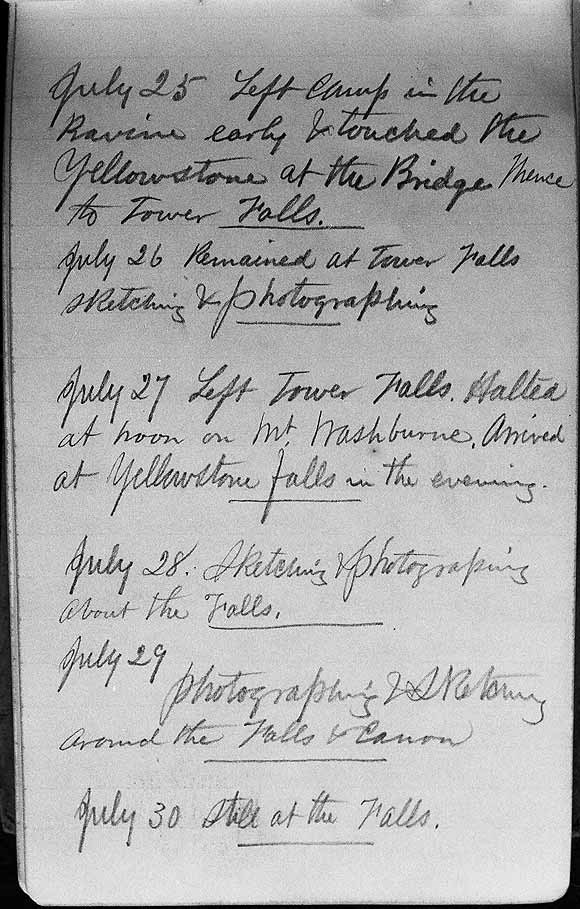 July 25 Left Camp in the
Ravine early & touched the
Yellowstone at the Bridge thence
to Tower Falls.
July 26 Remained at Tower Falls
sketching & photographing
July 27 Left Tower Falls. Halted
at noon on Mt. Washburne. Arrived
at Yellowstone falls in the evening.
July 28. Sketching & photographing
about the Falls.
July 29
photographing & Sketching
around the Falls & Canon
July 30 still at the Falls.